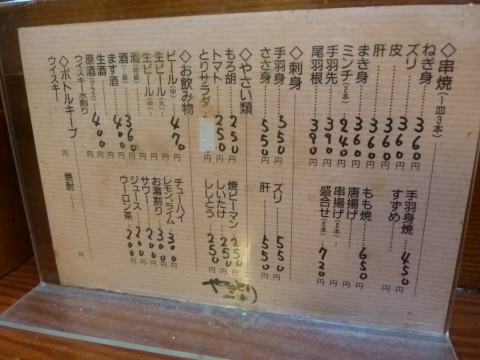 ◇串焼(一皿3本)
ねぎ身 360円
ズリ 360円
皮 360円
肝 360円
まき身 360円
ミンチ(2本) 240円
手羽先 390円
尾羽根 390円
手羽身焼 450円
すずめ 円
もも焼 650円
唐揚げ 円
串揚げ(5本) 円
盛合せ(5本) 730円
◇刺身
手羽身 550円
ささ身 550円
ズリ 550円
肝 550円
◇やさい類
もろ胡 250円
トマト 250円
とりサラダ 円
焼ピーマン 250円
しいたけ 250円
ししとう 250円
◇お飲み物
ビール(中) 470円
生ビール(大) 円
生ビール(中) 円
酒 360円
酒(一級)
ます酒 400円
生酒 円
原酒(グラス) 400円
ウイスキー水割り 円
チューハイ
レモン、ライム 300円
お湯割り 300円
サワー 200円
ジュース 200円
ウーロン茶 200円
◇ボトルキープ
ウイスキー 円
焼酎 円